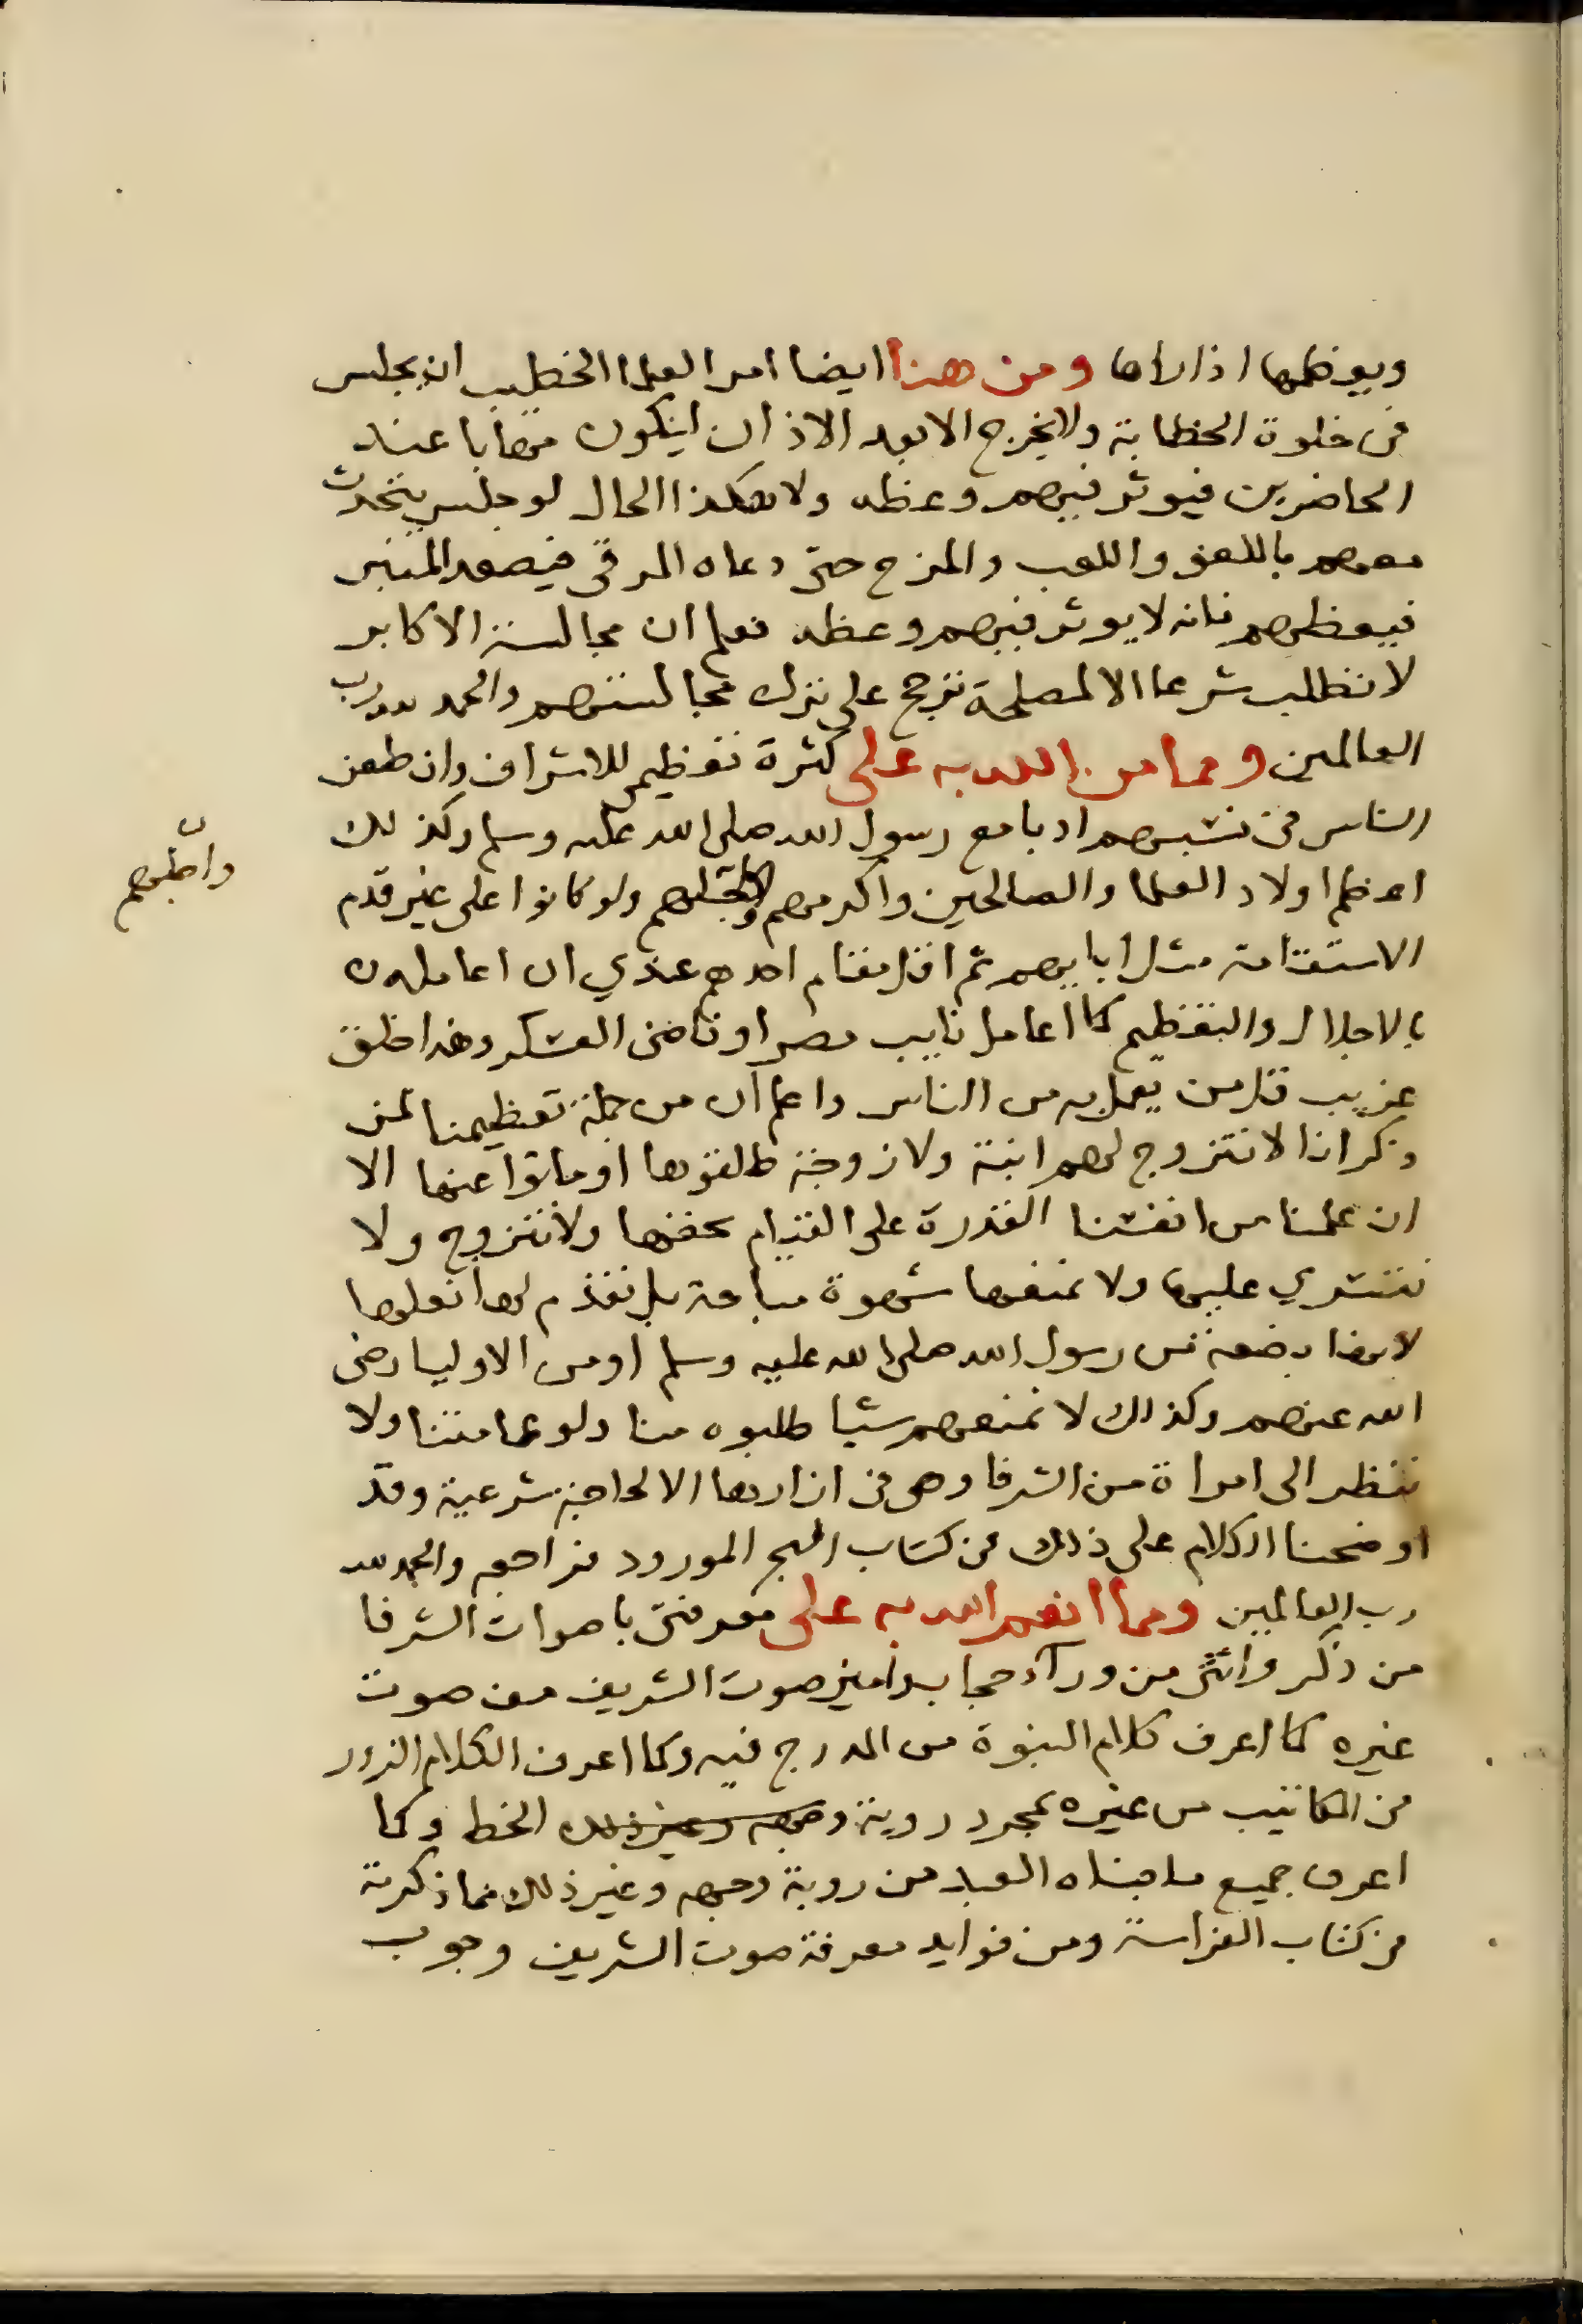 ويعظمها اذا راها ومن هنا ايضا امر العلما الخطيب ان يجلس
في خلوة الخطابة ولا يخرج الا بعد الاذان ليكون مهابا عند
الحاضرين فيوثر فيهم وعظه ولا هكذا الحال لو جلس يتحدث
معهم باللغو واللعب والمزح حتى دعاه المرقي فيصعد المنبر
فيعظهم فانه لا يوثر فيهم وعظه فعلم ان مجالسة الاكابر
لا تطلب شرعا الا لمصلحة ترجح على ترك مجالستهم والحمد لله رب
العالمين ومما من الله به على كثرة تعظيمي للاشراف وان طعن
الناس في نسبهم ادبا مع رسول الله صلى الله عليه وسلم وكذلك
اعظم اولاد العلما والصالحين واكرمهم ولو كانوا على غير قدم
واجلهم
الاستقامة مثل ابايهم ثم اقل مقام احدهم عندي ان اعامله
بالاجلال والتعظيم كما اعامل نايب مصر او قاضي العسكر وهذا خلق
غريب قل من يعمل به من الناس واعلم ان من جملة تعظيمنا لمن
ذكر انا لا نتزوج لهم ابنة ولا زوجة طلقوها او ماتوا عنها الا
ان علمنا من انفسنا القدرة على القيام بحقها ولا نتزوج ولا
نتسري عليها ولا نمنعها شهوة مباحة بل نقدم لها نعلها
لانها بضعة من رسول الله صلى الله عليه وسلم او من الاوليا رضي
الله عنهم وكذلك لا نمنعهم شيا طلبوه منا ولو عمامتنا ولا
ننظر الى امراة من الشرفا وهي في ازارها الا لحاجة شرعية وقد
اوضحنا الكلام على ذلك في كتاب البحر المورود فراجعه والحمد لله
رب العالمين ومما انعم الله به على معرفتي باصوات الشرفا
من ذكر وانثى من ورآء حجاب واميز صوت الشريف من صوت
غيره كما اعرف كلام النبوة من المدرج فيه وكما اعرف الكلام الزور
في المكاتيب من غيره بمجرد روية وجهه وغير ذلك الخط وكما
اعرف جميع ما جناه العبد من روية وجهه وغير ذلك مما ذكرته
في كتاب الفراسة ومن فوايد معرفة صوت الشريف وجوب